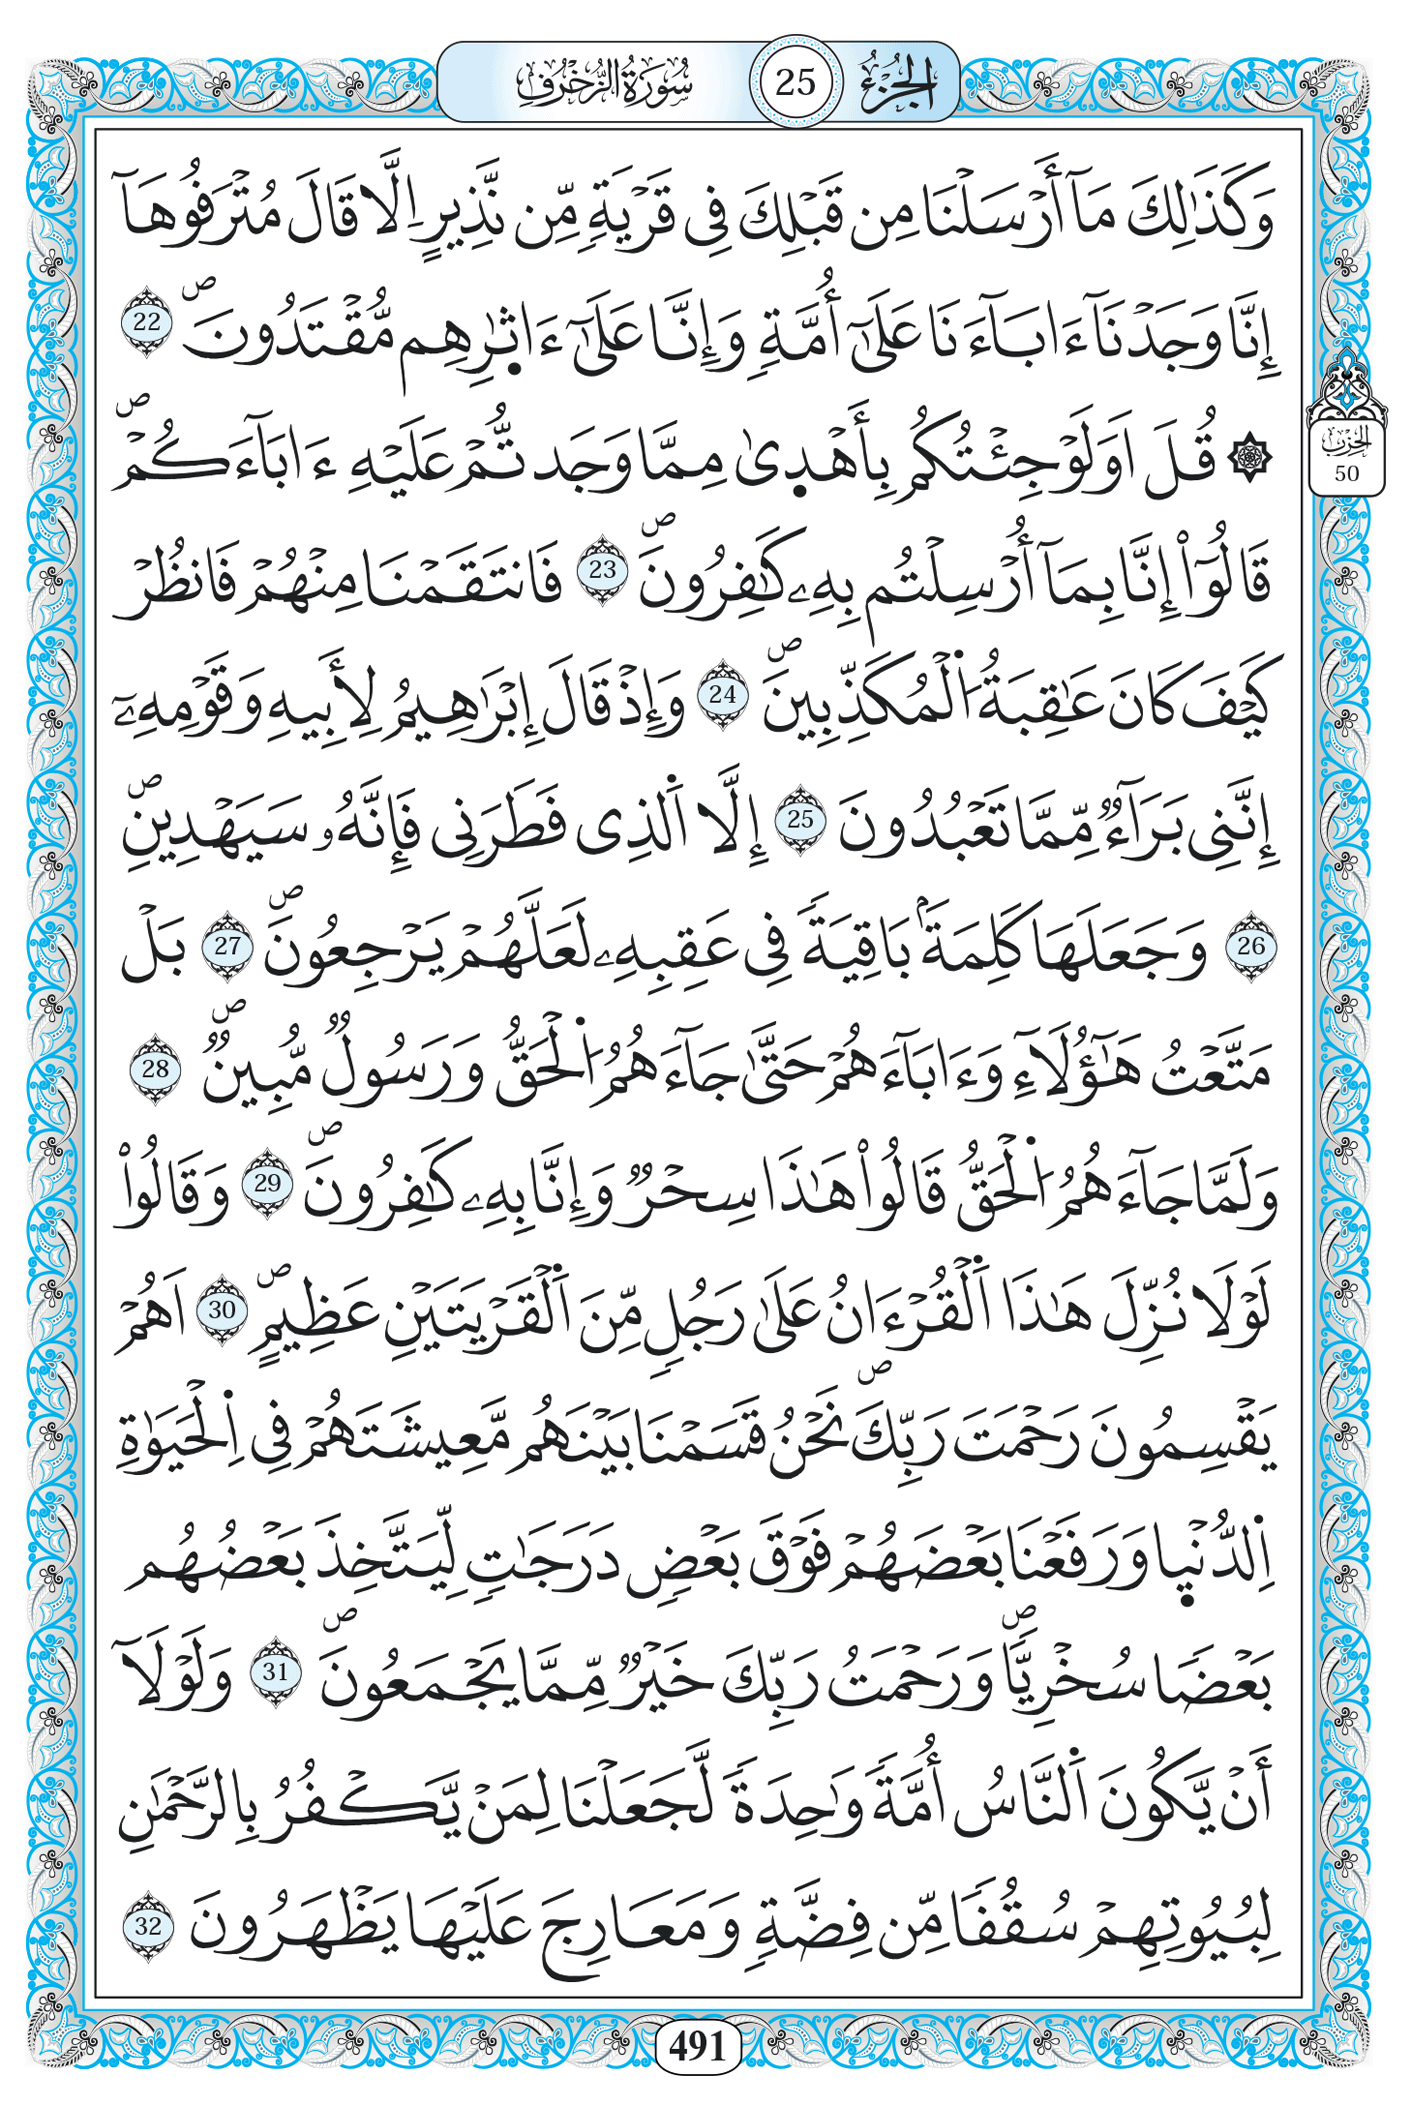 الجزء 25 سورة الزخرف
وَكَذَٰلِكَ مَآ أَرْسَلْنَا مِن قَبْلِكَ فِى قَرْيَةٍ مِّن نَّذِيرٍ اِلَّا قَالَ مُتْرَفُوهَآ
إِنَّا وَجَدْنَآ ءَابَآءَنَا عَلَىٰٓ أُمَّةٍ وَإِنَّا عَلَىٰٓ ءَاثٰرِهِم مُّقْتَدُونَۖ 22
۞ قُلَ اَوَلَوْ جِئْتُكُم بِأَهْدِىٰ مِمَّا وَجَدتُّمْ عَلَيْهِ ءَابَآءَكُمْۖ
قَالُوٓاْ إِنَّا بِمَآ أُرْسِلْتُم بِهِۦ كَٰفِرُونَۖ 23 فَانتَقَمْنَا مِنْهُمْ فَانظُرْ
كَيْفَ كَانَ عَٰقِبَةُ اُ۬لْمُكَذِّبِينَۖ 24 وَإِذْ قَالَ إِبْرَٰهِيمُ لِأَبِيهِ وَقَوْمِهِۦٓ
إِنَّنِى بَرَآءٌ مِّمَّا تَعْبُدُونَ 25 إِلَّا اَ۬لذِى فَطَرَنِى فَإِنَّهُۥ سَيَهْدِينِۖ
26 وَجَعَلَهَا كَلِمَةَۢ بَاقِيَةً فِى عَقِبِهِۦ لَعَلَّهُمْ يَرْجِعُونَۖ 27 بَلْ
مَتَّعْتُ هَٰٓؤُلَآءِ وَءَابَآءَهُمْ حَتَّىٰ جَآءَهُمُ اُ۬لْحَقُّ وَرَسُولٌ مُّبِينٌۖ 28
وَلَمَّا جَآءَهُمُ اُ۬لْحَقُّ قَالُواْ هَٰذَا سِحْرٌ وَإِنَّا بِهِۦ كَٰفِرُونَۖ 29 وَقَالُواْ
لَوْلَا نُزِّلَ هَٰذَا اَ۬لْقُرْءَانُ عَلَىٰ رَجُلٍ مِّنَ اَ۬لْقَرْيَتَيْنِ عَظِيمٍۖ 30 اَهُمْ
يَقْسِمُونَ رَحْمَتَ رَبِّكَۖ نَحْنُ قَسَمْنَا بَيْنَهُم مَّعِيشَتَهُمْ فِى اِ۬لْحَيَوٰةِ
اِ۬لدُّنْيٰا وَرَفَعْنَا بَعْضَهُمْ فَوْقَ بَعْضٍ دَرَجَٰتٍ لِّيَتَّخِذَ بَعْضُهُم
بَعْضًا سُخْرِيًّاۖ وَرَحْمَتُ رَبِّكَ خَيْرٌ مِّمَّا يَجْمَعُونَۖ 31 وَلَوْلَآ
أَنْ يَّكُونَ اَ۬لنَّاسُ أُمَّةً وَٰحِدَةً لَّجَعَلْنَا لِمَنْ يَّكْفُرُ بِالرَّحْمَٰنِ
لِبُيُوتِهِمْ سُقُفًا مِّن فِضَّةٍ وَمَعَارِجَ عَلَيْهَا يَظْهَرُونَ 32
الحزب
50
491